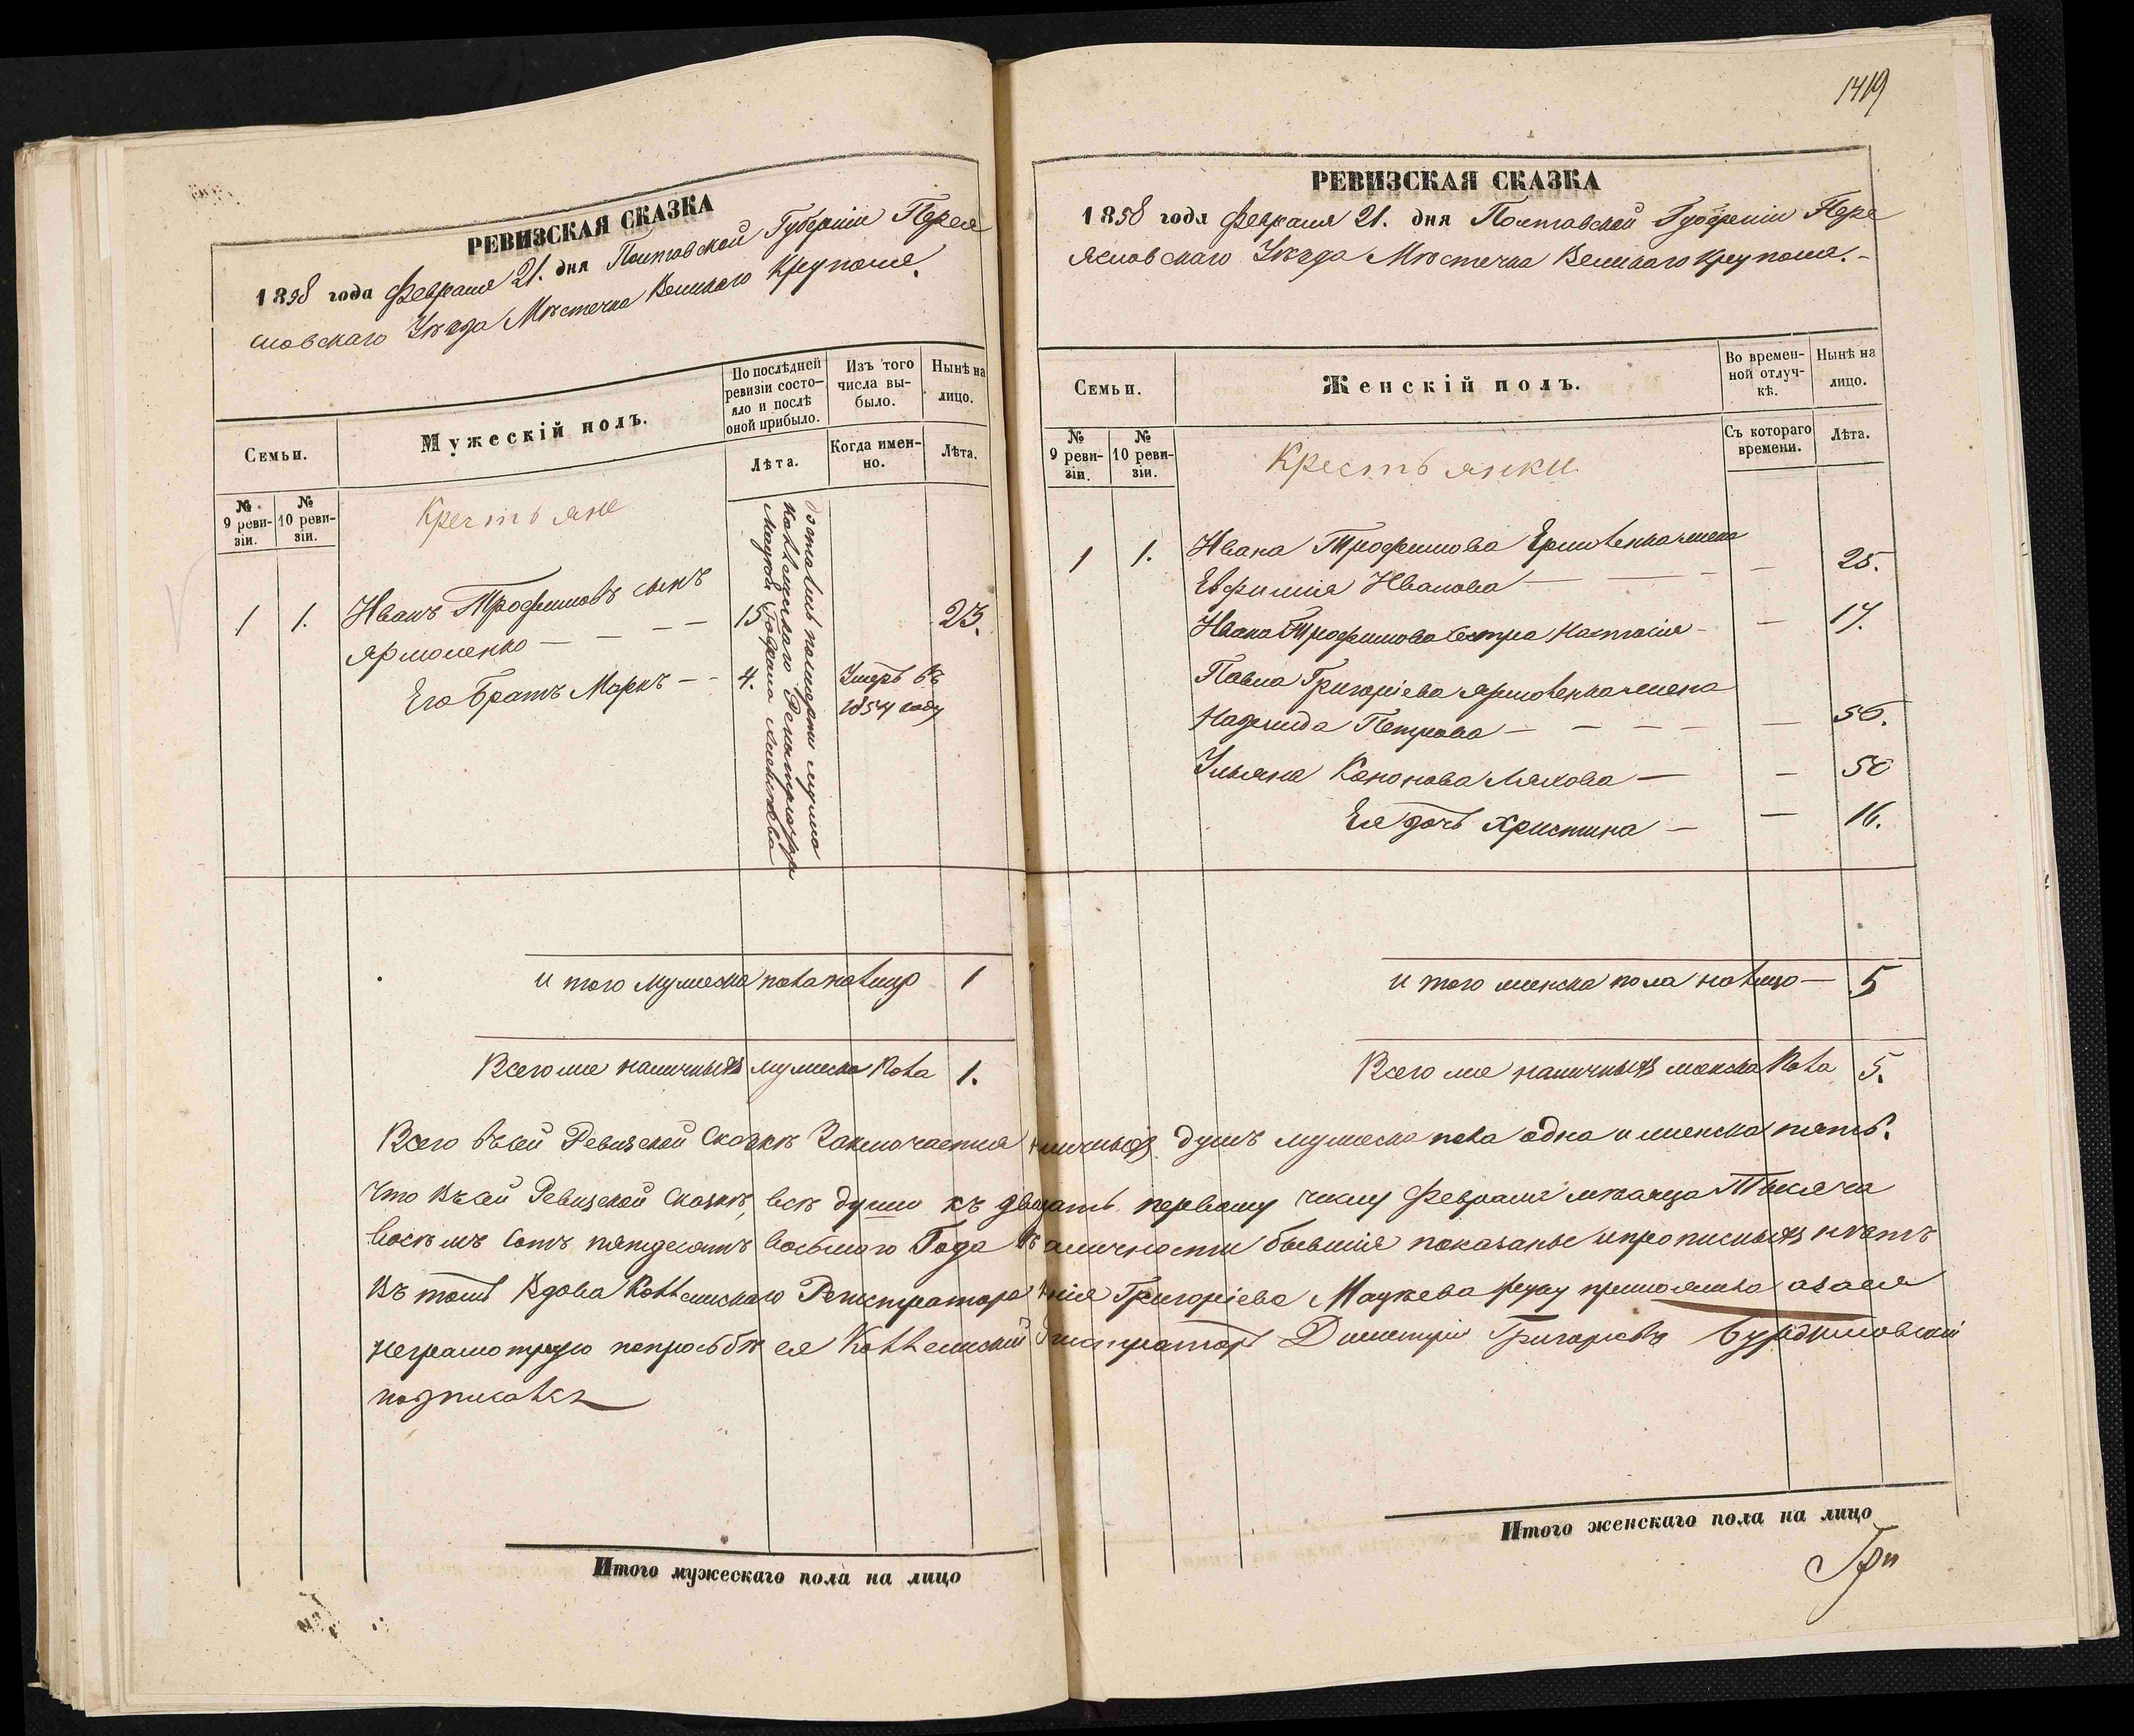 РЕВИЗСКАЯ СКАЗКА
1858 года Февраля 21. дня Полтавской Губерніи Перея
словскаго Уѣзда Мѣстечка Великаго Крупола.
Семьи.
Мужескій полъ.
По послѣдней
ревизіи состо-
яло и послѣ
оной прибыло.
Изъ того
числа вы-
было.
Нынѣ на
лицо.
Лѣта.
Когда имен-
но.
Лѣта.
№
9 реви-
зіи.
№
10 реви-
зіи.
Крестьяне
по смерти мужа
Коллежскаго Регистратора
1 1. Иванъ Трофимовъ сынъ
Ярмоленко — — — — 15 23.
Его братъ Маркъ — — 4. Умеръ въ
1854 году
и того мужеска пола налицо 1
Всего же наличныхъ мужеска Пола 1.
1419
РЕВИЗСКАЯ СКАЗКА
1858 года Февраля 21. дня Полтавской Губерніи Пере
яславскаго Уѣзда Мѣстечка Великаго Крупола. -
Семьи.
Женскій полъ.
Во времен-
ной отлуч-
кѣ.
Нынѣ на
лицо.
№
9 реви-
зіи.
№
10 реви-
зіи.
Съ котораго
времени.
Лѣта.
Крестьянки
1 1. Ивана Трофимова Ермоленка жена
Евфимія Иванова — — - — 25.
Ивана Трофимова сестра Настасія - — 17.
Павла Григоріева Ярмоленка жена
Надежда Петрова — — — — — 56.
Ульяна Кононова Ляхова — — 50
Ея дочь Христина — — 16.
и того женска пола налицо — 5
Всего же наличныхъ женска Пола 5.
Всего въ сей Ревизской Сказкѣ Заключается личныхъ душъ мужеска пола одна и женска пять.
Что въ сей Ревизской Сказкѣ, всѣ души къ двацать первому числу Февраля мѣсяца Тысяча
восѣмъ Сотъ пятдесятъ восьмого Года въ аличности бывшія показаны и прописныхъ нѣтъ
Въ томъ Вдова Коллежскаго Регистратора Григоріева руку приложила а за ея
неграмотную попросьбѣ ея Коллежскій гистраторъ Димитрій Григорьевъ
подписался
Итого мужескаго пола на лицо
Итого женскаго пола на лицо
Гри